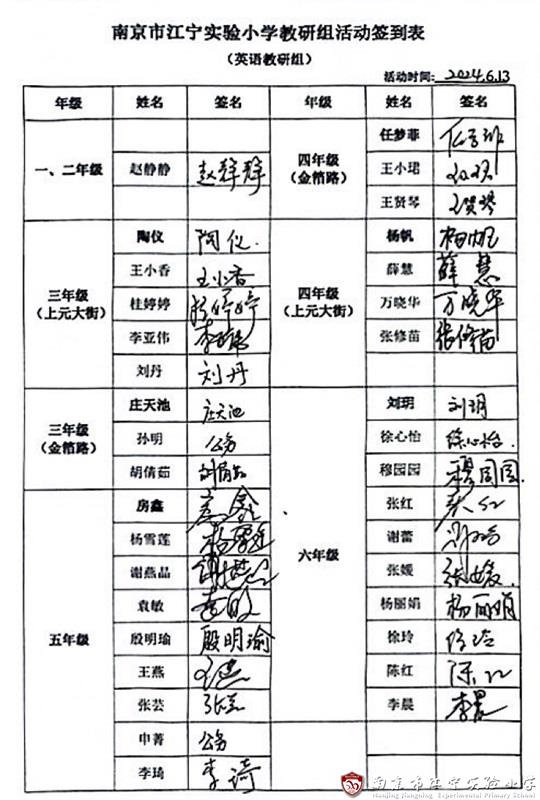 南京市江宁实验小学教研组活动签到表
（英语教研组）
活动时间: 2024.6.13
年级 姓名 签名 年级 姓名 签名
一、二年级 赵静静 赵静静
四年级（金箔路） 任梦菲
王小珺
王贤琴 王贤琴
三年级（上元大街） 陶仪 陶仪.
王小香 王小香
桂婷婷 桂婷婷
李亚伟 李亚伟
刘丹 刘丹
四年级（上元大街） 杨帆 杨帆
薛慧 薛慧
万晓华 万晓华
张修苗 张修苗
三年级（金箔路） 庄天池 庄天池
孙明 公务
胡倩茹
五年级 房鑫 房鑫
杨雪莲 杨雪莲
谢燕晶
袁敏 袁敏
殷明瑜 殷明瑜
王燕 王燕
张芸 张芸
申菁 公务
李琦 李琦
六年级 刘玥 刘玥
徐心怡 徐心怡.
穆园园 穆园园
张红 张红
谢蕾
张媛 张媛
杨丽娟 杨丽娟
徐玲 徐玲
陈红 陈红
李晨 李晨
南京市江宁实验小学
Nanjing Jiangning Experimental Primary School